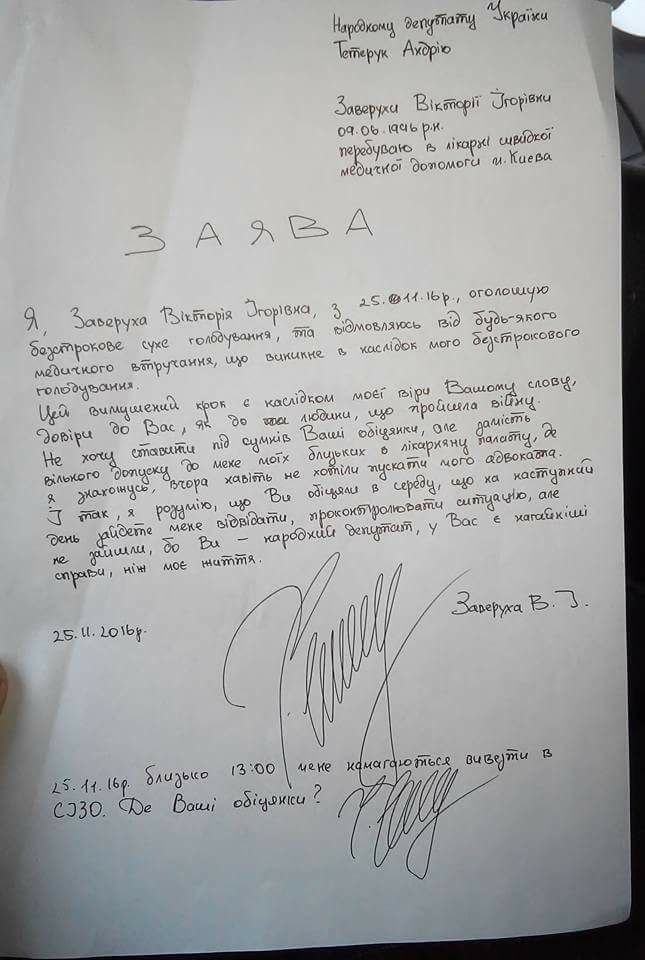 Народному депутату України
Тетерук Андрію
Заверухи Вікторії Ігорівни
09.06.1996 р.н.
перебуваю в лікарні швидкої
медичної допомоги м. Києва
ЗАЯВА
Я, Заверуха Вікторія Ігорівна, з 25.11.16р., оголошую
безстрокове сухе голодування, та відмовляюсь від будь-якого
медичного втручання, що виникне в наслідок мого безстрокового
голодування.
Цей вимушений крок є наслідком моєї віри Вашому слову,
довіри до Вас, як до людини, що пройшла війну.
Не хочу ставити під сумнів Ваші обіцянки, але замість
вільного допуску до мене моїх близьких в лікарняну палату, де
я знаходжусь, вчора навіть не хотіли пускати мого адвоката.
І так, я розумію, що Ви обіцяли в середу, що на наступний
день зайдете мене відвідати, проконтролювати ситуацію, але
не зайшли, бо Ви – народний депутат, у Вас є нагайніші
справи, ніж моє життя.
25.11.2016р.
Заверуха В. І.
25.11.16р. близько 13:00 мене намагаються вивезти в
СІЗО. Де Ваші обіцянки?